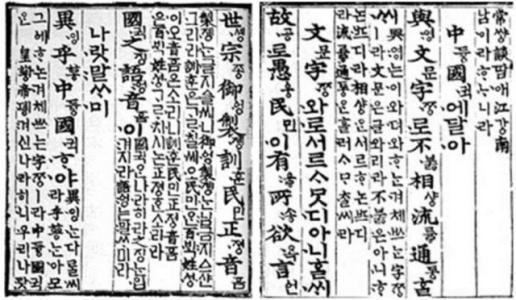 世솅宗종御엉製졩訓훈民민正졍音ᅙᅳᆷ
製졩ᄂᆞᆫ글지ᅀᅳᆯ씨니御엉製졩ᄂᆞᆫ님금지ᅀᅳ샨
그리라訓훈ᄋᆞᆫᄀᆞᄅᆞ칠씨오民민ᄋᆞᆫ百ᄇᆡᆨ姓셩
이오音ᅙᅳᆷ은소리니訓훈民민正졍音ᅙᅳᆷ
은百ᄇᆡᆨ姓셩ᄀᆞᄅᆞ치시논正졍ᄒᆞᆫ소리라
國귁之징語ᅌᅥᆼ音ᅙᅳᆷ이 國귁ᄋᆞᆫ나라히라之징ᄂᆞᆫ입
겨지라語ᅌᅥᆼᄂᆞᆫ말ᄊᆞ미라
나랏말ᄊᆞ미
異잉乎ᅘᅩᆼ中듕國귁ᄒᆞ야 異잉ᄂᆞᆫ다ᄅᆞᆯ씨라乎ᅘᅩᆼᄂᆞᆫ아모
그ᅌᅦᄒᆞ논겨체ᄡᅳᄂᆞᆫ字ᄍᆞᆼㅣ라中듕國귁
ᄋᆞᆫ皇ᅘᅪᆼ帝뎽겨신나라히니우리나랏
常썅談땀애江강南
남이라ᄒᆞᄂᆞ니라
中듕國귁에달아
與영文문字ᄍᆞᆼ로不붏相샹流륳通통ᄒᆞᆯ
與영는이와뎌와ᄒᆞ논겨체ᄡᅳ는字ᄍᆞᆼ
ㅣ라文문은글와리라不붏은아니ᄒᆞ
논ᄠᅳ디라相샹ᄋᆞᆫ서르ᄒᆞ논ᄠᅳ디
라流륳通통ᄋᆞᆫ흘러ᄉᆞᄆᆞᄎᆞᆯ씨라
文문字ᄍᆞᆼ와로서르ᄉᆞᄆᆞᆺ디아니ᄒᆞᆯᄊᆡ
故공로愚ᅌᅮᆼ民민이有ᅌᅮᇢ所송欲욕言